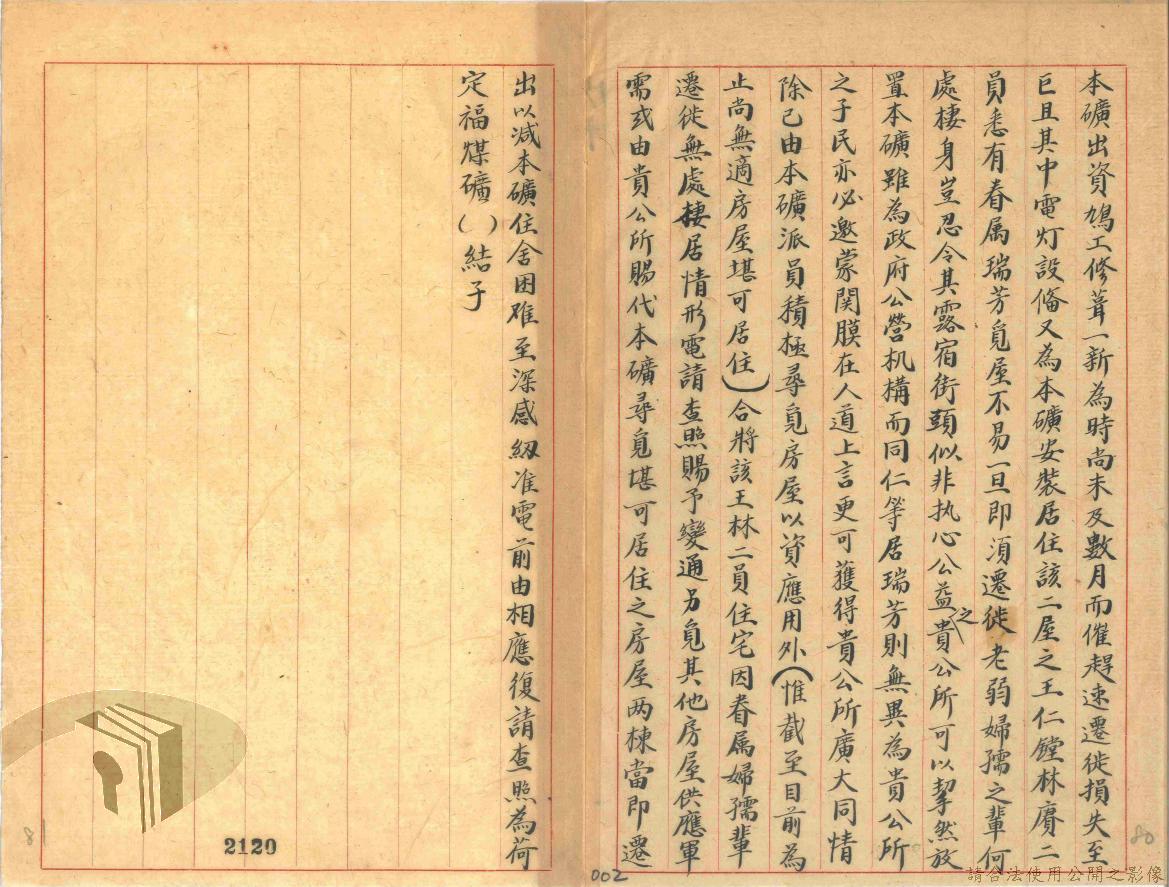 本礦出資鳩工修葺一新為時尚未及數月而催趕速遷徙損失至
巨且其中電灯設偹又為本礦安裝居住該二屋之王仁鏜林賡二
員悉有眷属瑞芳覓屋不易一旦即須遷徙老弱婦孺之輩何
處棲身豈忍令其露宿街頭似非执心公益之貴公所可以挈然放
置本礦雖為政府公營机構而同仁等居瑞芳則無異為貴公所
之子民亦必邀蒙関膜在人道上言更可獲得貴公所廣大同情
除已由本礦派員積極尋覓房屋以資應用外(惟截至目前為
止尚無適房屋堪可居住)合將該王林二員住宅因眷属婦孺輩
遷徙無處棲居情形電請查照賜予變通另覓其他房屋供應軍
需或由貴公所賜代本礦尋覓堪可居住之房屋两棟當即遷
出以减本礦住舍困难至深感紉准電前由相應復請查照為荷
定福煤礦( )結子
2120
002
80
81
請合法使用公開之影像